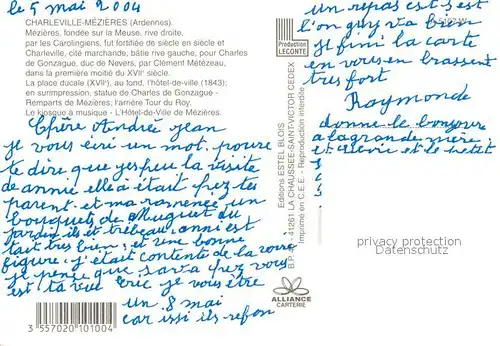 le 5 mai 2004
CHARLEVILLE-MÉZIÈRES (Ardennes).
Mézières, fondée sur la Meuse, rive droite,
par les Carolingiens, fut fortifiée de siècle en siècle et
Charleville, cité marchande, bâtie rive gauche, pour Charles
de Gonzague, duc de Nevers, par Clément Métézeau,
dans la première moitié du XVIIe siècle.
La place ducale (XVIIe), au fond, l'hôtel-de-ville (1843);
en surimpression, statue de Charles de Gonzague -
Remparts de Mézières; l'arrière Tour du Roy.
Le kiosque à musique - L'Hôtel-de-Ville de Mézières.
Chère Andrée jean
je vous un mot pour
te dire que la visite
de annie elle a était chez tes
parent et ma ramenée un
bouquets de Muguet du
jardin il et trebeau anni est
était tres bien et une bonne
figure j'était contente de la voire
je pense que sava chez vous
est ta vue Eric je vous être
un 8 mai
car issi ils refon
3 557020 101004
un repas est s'est
l'on guy va bien
je fini la carte
en vous en brassent
tres fort
Raymonde
donne le bonjour
a la grande mère
et et le petit
Production
LECONTE
Editions ESTEL BLOIS
B.P. 41261 LA CHAUSSEE-SAINT-VICTOR CEDEX
Imprimé en C.E.E. - Reproduction interdite
ALLIANCE
CARTERIE
privacy protection
Datenschutz